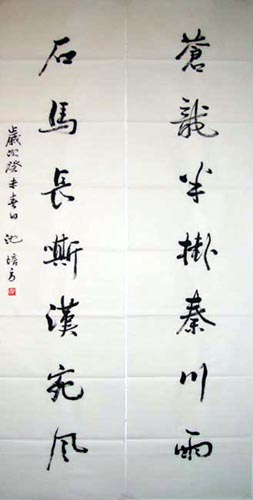 蒼龍半掛秦川雨
石馬長嘶漢苑風
歲次癸未春日 沈培方